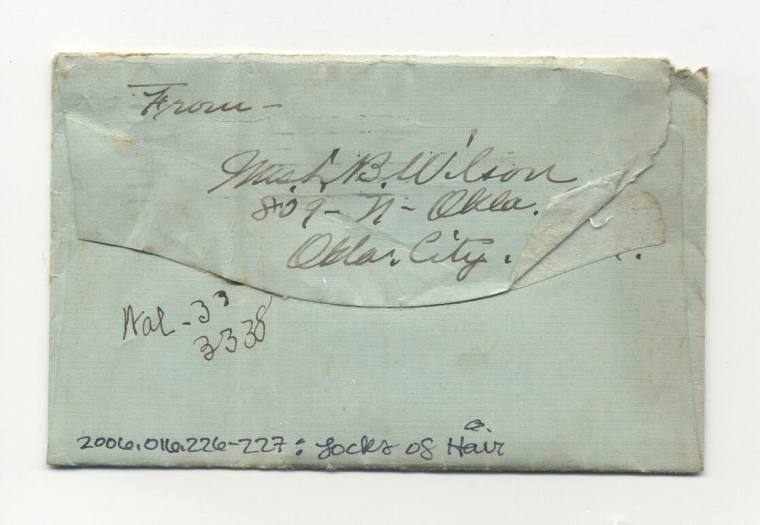 From -
Mrs. L. B. Wilson
809 - N - Okla.
Okla. City.
Wal - 33
3338
2006.016.226-227: Locks of Hair